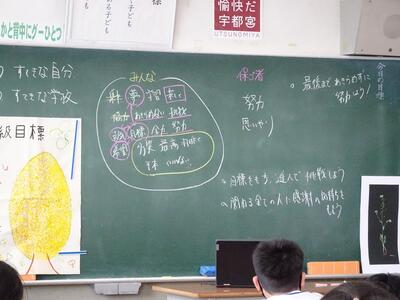 かと背中にグーひとつ
子ども
ある子ども
様
愉快だ
宇都宮
UTSUNOMIYA
すてきな自分
すてきな学校
級目標
みんな
夢
協力 あきらめない 挑戦
目標 全力 努力
最高
保護者
努力
思いやり
今日の目標
最後まであきらめずに
努力しよう
目標をもち、進んで挑戦しよう
関わる全ての人に感謝の気持ちを
もとう